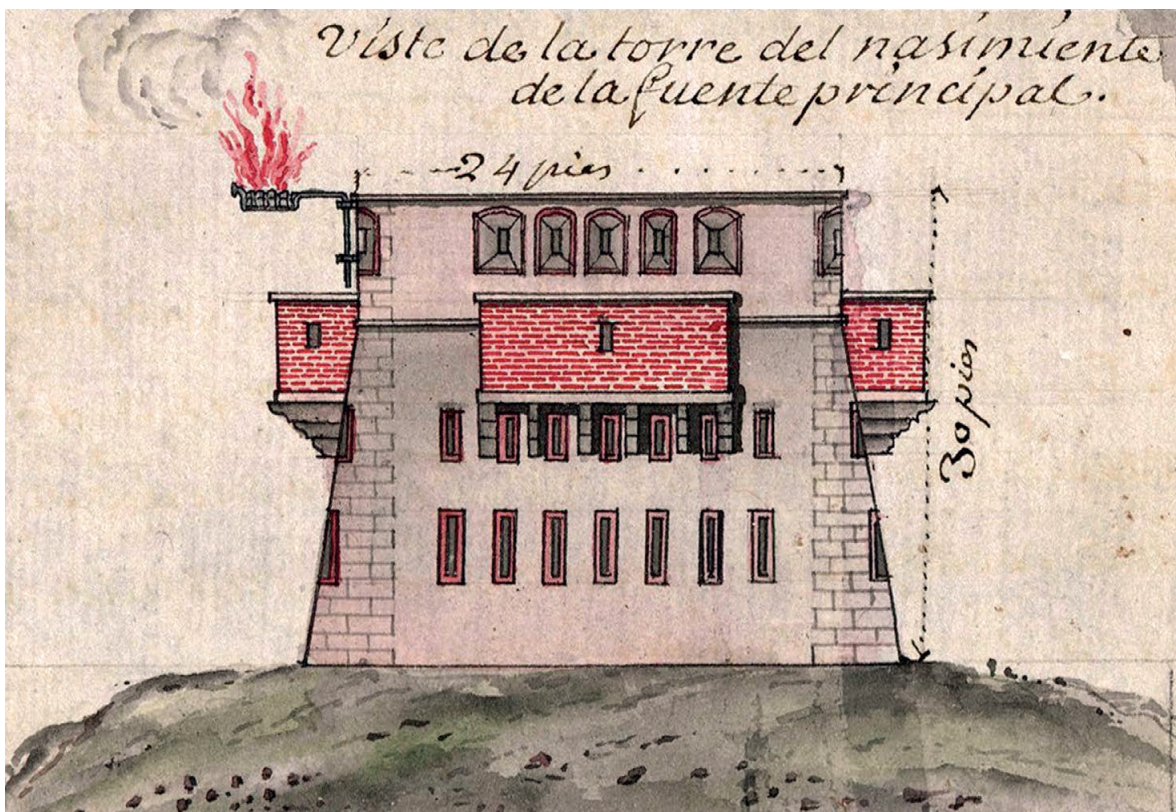 Viste de la torre del nasimiente
de la fuente principal.
24 pies
30 pies